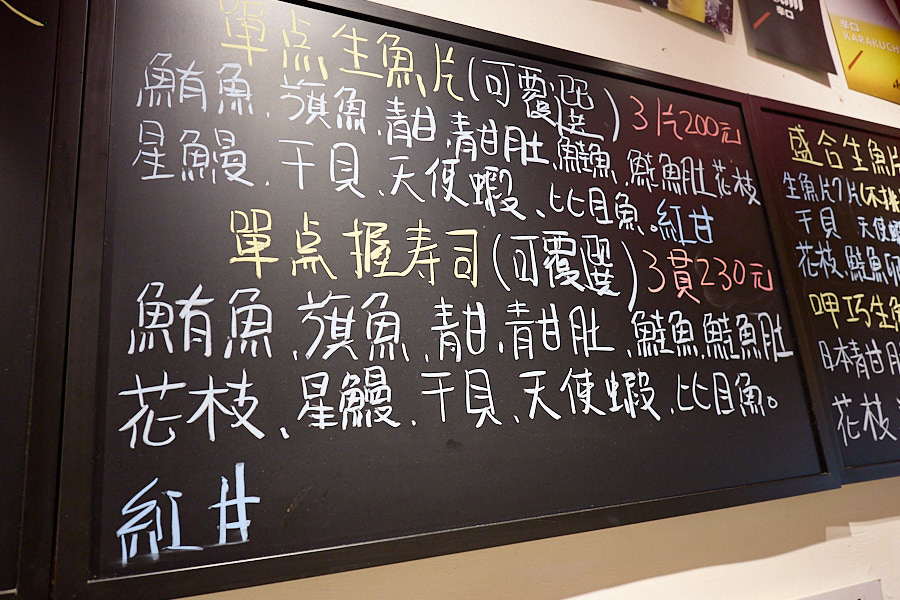 單点生魚片(可覆選)3片200元
鮪魚、旗魚、青甘、青甘肚、鮭魚、鮭魚肚花枝
星鰻、干貝、天使蝦、比目魚。紅甘
單点握寿司(可覆選)3貫230元
鮪魚、旗魚、青甘、青甘肚、鮭魚、鮭魚肚
花枝、星鰻、干貝、天使蝦、比目魚。
紅甘
盛合生魚片
生魚片7片(不挑
干貝 天使蝦
花枝、鮭魚卵
呷巧生魚
日本青甘
花枝
辛口
KARAKUCH
辛口